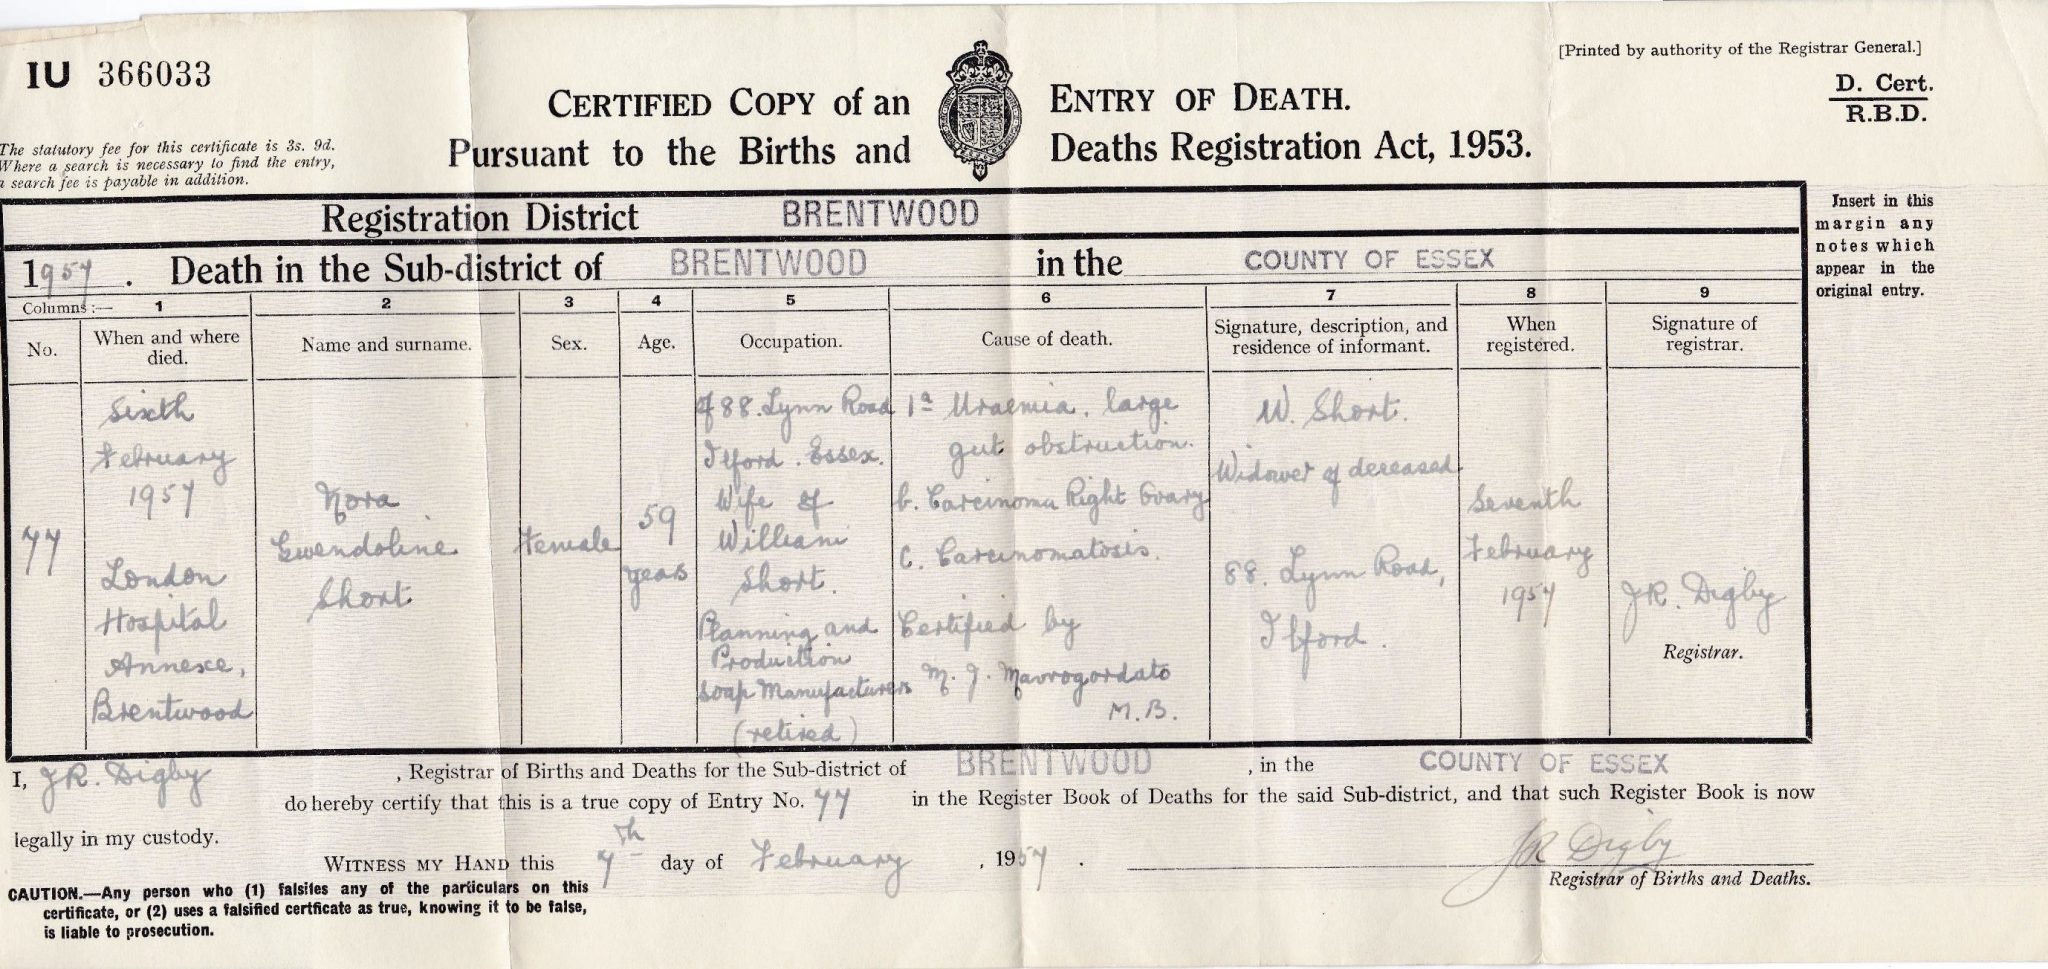 IU 366033
[Printed by authority of the Registrar General.]
D. Cert.
R.B.D.
CERTIFIED COPY of an ENTRY OF DEATH.
Pursuant to the Births and Deaths Registration Act, 1953.
The statutory fee for this certificate is 3s. 9d.
Where a search is necessary to find the entry,
a search fee is payable in addition.
Registration District BRENTWOOD
1957. Death in the Sub-district of BRENTWOOD in the COUNTY OF ESSEX
Insert in this
margin any
notes which
appear in the
original entry.
Columns:— 1 2 3 4 5 6 7 8 9
No.
When and where
died.
Name and surname.
Sex.
Age.
Occupation.
Cause of death.
Signature, description, and
residence of informant.
When
registered.
Signature of
registrar.
77
Sixth
February
1957
London
Hospital
Annexe,
Brentwood
Nora
Gwendoline
Short
Female
59
years
of 88. Lynn Road
Ilford. Essex.
Wife of
William
Short.
Planning and
Production
Soap Manufacturers
(retired)
1a Uraemia. large
gut obstruction.
b. Carcinoma Right Ovary
c. Carcinomatosis.
Certified by
M. J. Mavrogordato
M.B.
W. Short.
Widower of deceased
88. Lynn Road,
Ilford.
Seventh
February
1957
JR. Digby
Registrar.
I, JR. Digby, Registrar of Births and Deaths for the Sub-district of BRENTWOOD, in the COUNTY OF ESSEX
do hereby certify that this is a true copy of Entry No. 77 in the Register Book of Deaths for the said Sub-district, and that such Register Book is now
legally in my custody.
WITNESS MY HAND this 7th day of February, 1957.
JR Digby
Registrar of Births and Deaths.
CAUTION.—Any person who (1) falsifies any of the particulars on this
certificate, or (2) uses a falsified certficate as true, knowing it to be false,
is liable to prosecution.